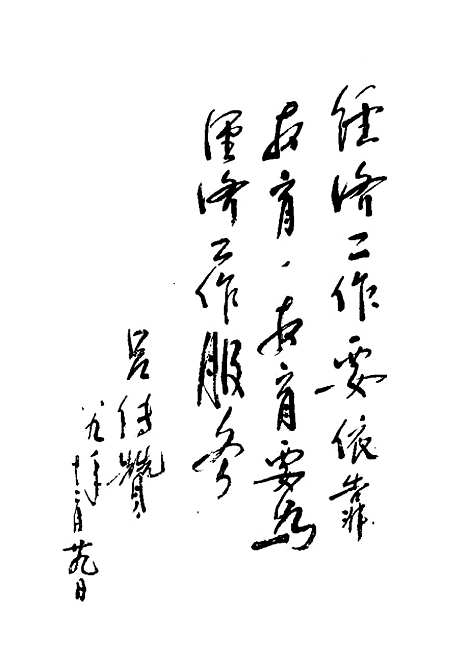 经济工作要依靠
教育，教育要为
经济工作服务
吕传赞
八九年
十二月廿九日